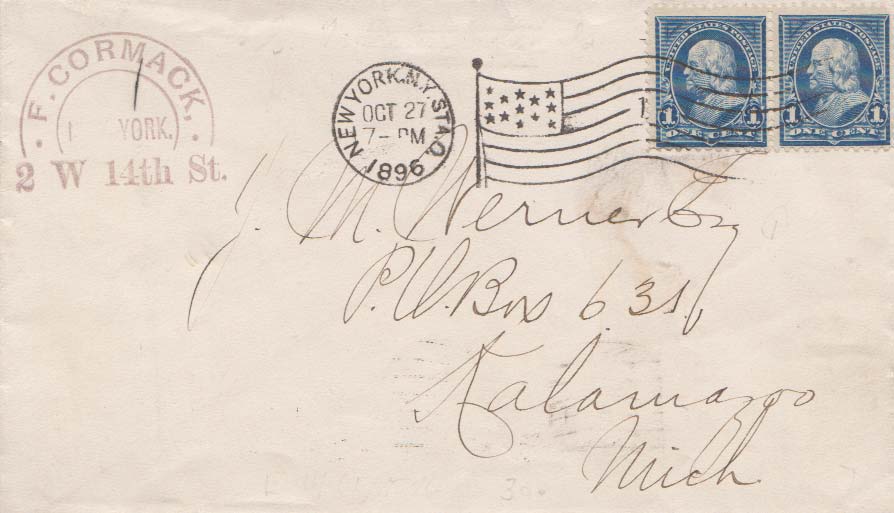 F. CORMACK,
YORK.
2 W 14th St.
NEW YORK, N.Y. STA.O.
OCT 27
7- PM
1896
1
UNITED STATES POSTAGE
1 ONE CENT 1
UNITED STATES POSTAGE
1 ONE CENT 1
J. M. Werner Esq
P.O. Box 631,
Kalamazoo
Mich